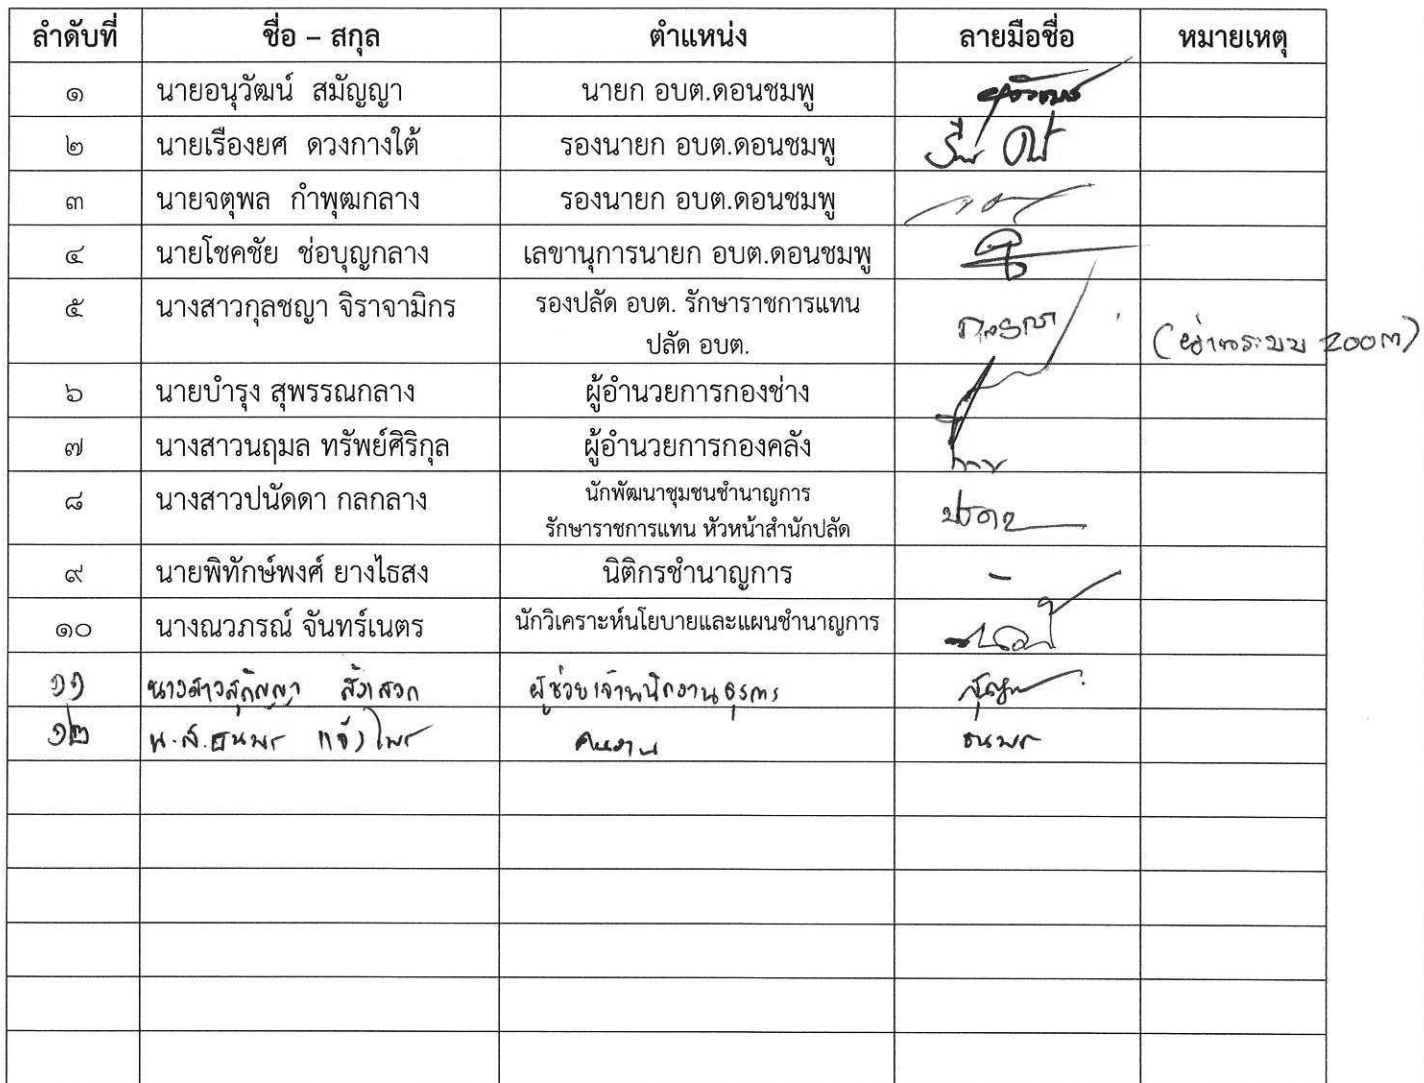 ลำดับที่ ชื่อ – สกุล ตำแหน่ง ลายมือชื่อ หมายเหตุ
๑ นายอนุวัฒน์ สมัญญา นายก อบต.ดอนชมพู
๒ นายเรืองยศ ดวงกางใต้ รองนายก อบต.ดอนชมพู
๓ นายจตุพล กำพุฒกลาง รองนายก อบต.ดอนชมพู
๔ นายโชคชัย ช่อบุญกลาง เลขานุการนายก อบต.ดอนชมพู
๕ นางสาวกุลชญา จิราจามิกร รองปลัด อบต. รักษาราชการแทน
ปลัด อบต. (ผ่านระบบ zoom)
๖ นายบำรุง สุพรรณกลาง ผู้อำนวยการกองช่าง
๗ นางสาวนฤมล ทรัพย์ศิริกุล ผู้อำนวยการกองคลัง
๘ นางสาวปนัดดา กลกลาง นักพัฒนาชุมชนชำนาญการ
รักษาราชการแทน หัวหน้าสำนักปลัด
๙ นายพิทักษ์พงศ์ ยางไธสง นิติกรชำนาญการ -
๑๐ นางณวภรณ์ จันทร์เนตร นักวิเคราะห์นโยบายและแผนชำนาญการ
๑๑ นางสาวสุกัญญา ผู้ช่วยเจ้าพนักงานธุรการ
๑๒ น.ส.ธนพร คนงาน ธนพร